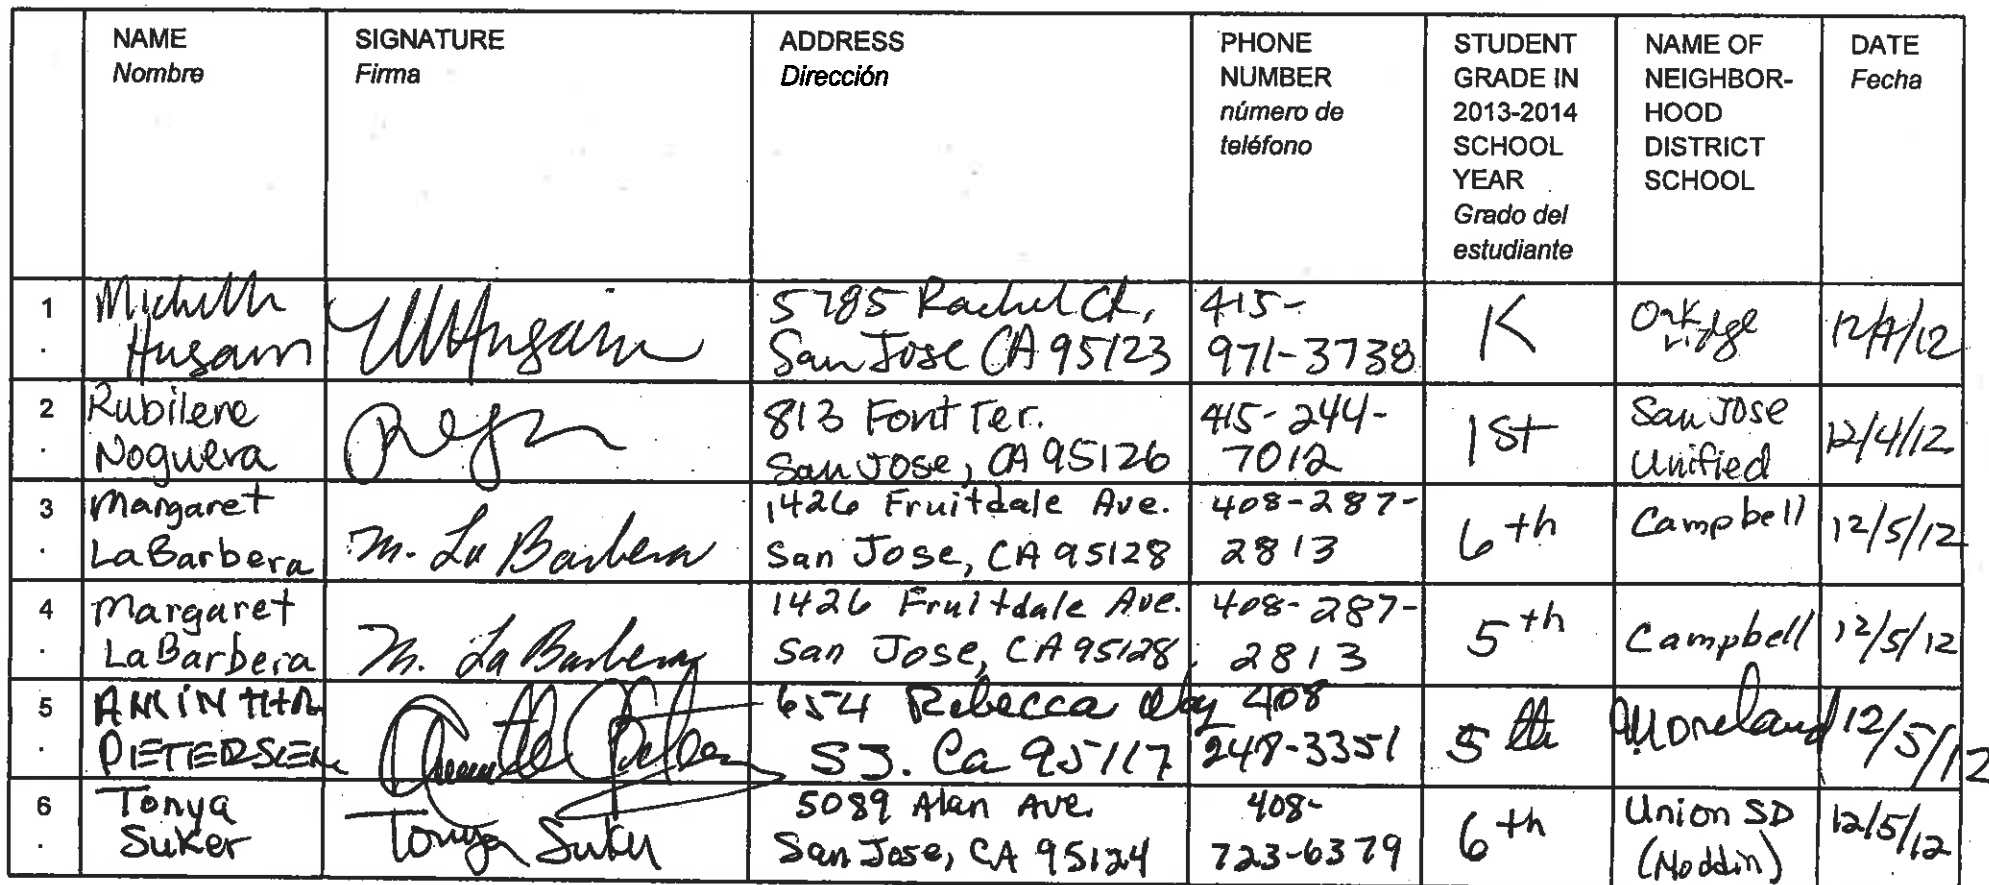 NAME
Nombre
SIGNATURE
Firma
ADDRESS
Dirección
PHONE
NUMBER
número de
teléfono
STUDENT
GRADE IN
2013-2014
SCHOOL
YEAR
Grado del
estudiante
NAME OF
NEIGHBOR-
HOOD
DISTRICT
SCHOOL
DATE
Fecha
1
.
Michelle
Husain
5785 Rachel Ct,
San Jose CA 95123
415-
971-3738
K
Oak
ridge
12/4/12
2
.
Rubilene
Noguera
813 Font Ter.
San Jose, CA 95126
415-244-
7012
1st
San Jose
Unified
12/4/12
3
.
Margaret
LaBarbera
M. La Barbera
1426 Fruitdale Ave.
San Jose, CA 95128
408-287-
2813
6th
Campbell
12/5/12
4
.
Margaret
LaBarbera
M. La Barbera
1426 Fruitdale Ave.
San Jose, CA 95128
408-287-
2813
5th
Campbell
12/5/12
5
.
PIETERSEN
654 Rebecca Way
SJ. Ca 95117
408
248-3351
5th
Moreland
12/5/12
6
.
Tonya
Suker
Tonya Suker
5089 Alan Ave.
San Jose, CA 95124
408-
723-6379
6th
Union SD
(Noddin)
12/5/12